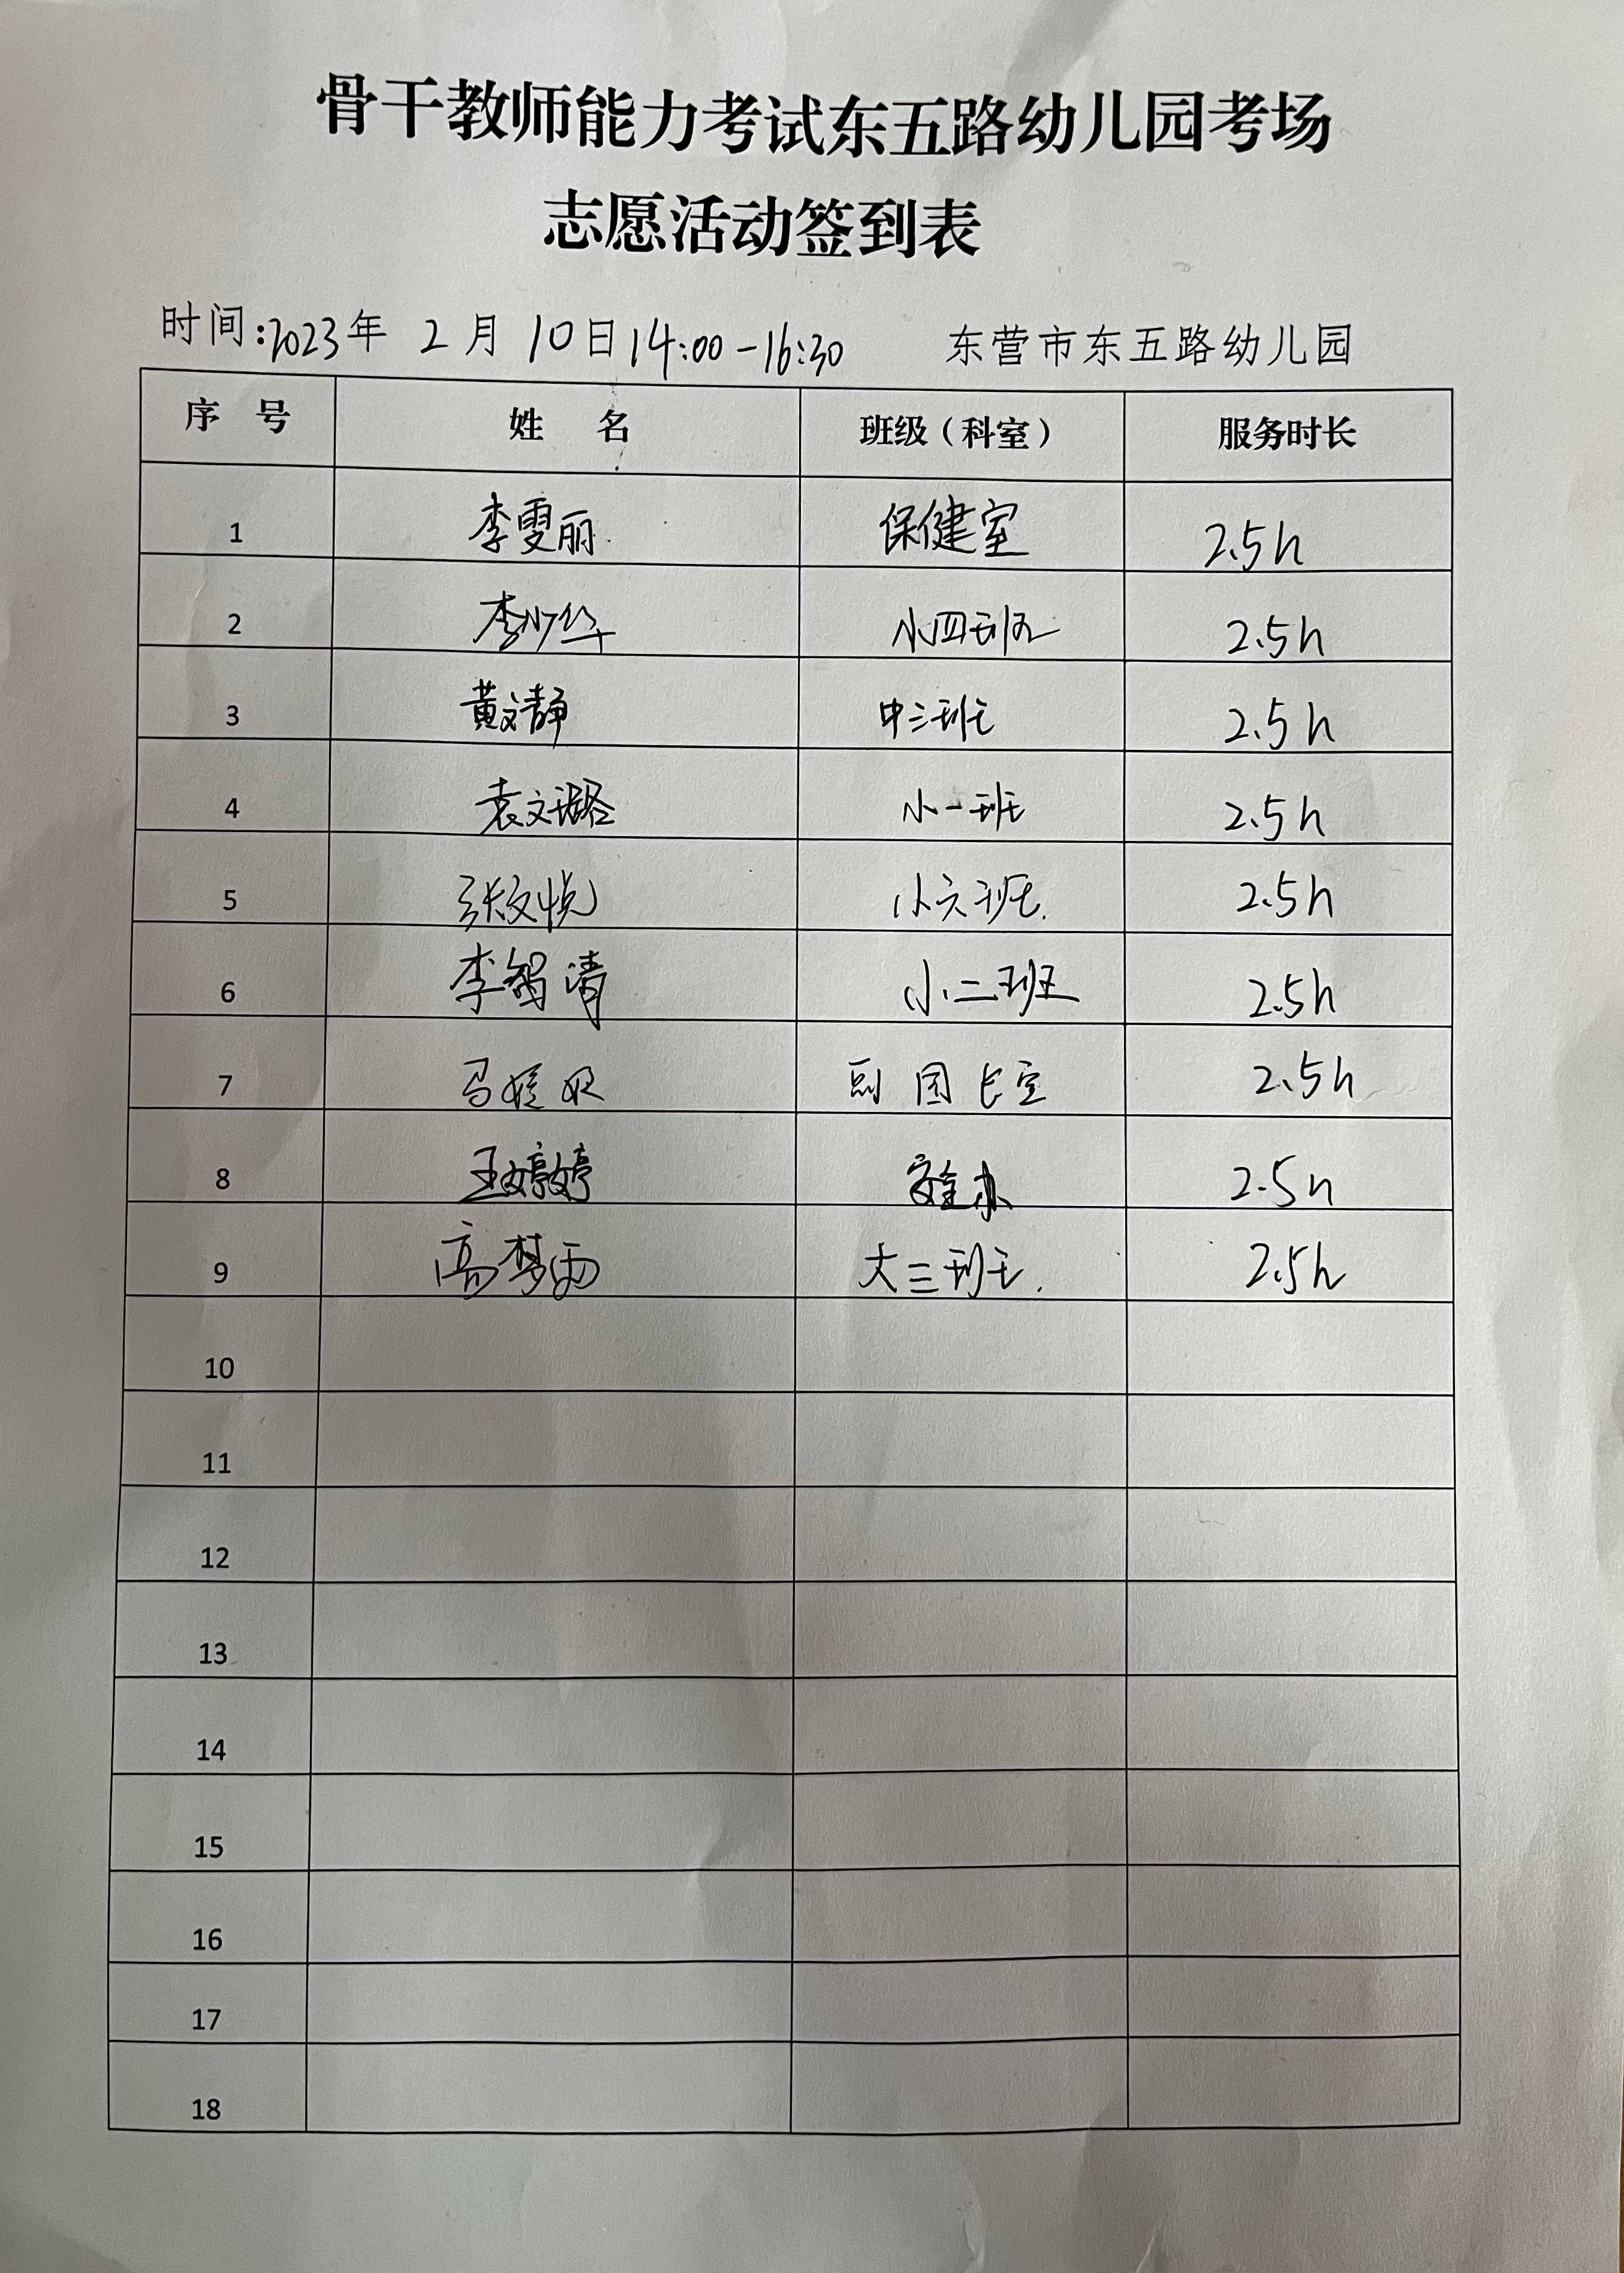 骨干教师能力考试东五路幼儿园考场
志愿活动签到表
时间:2023年 2月 10日14:00-16:30 东营市东五路幼儿园
序 号 姓 名 班级（科室） 服务时长
1 李雯丽 保健室 2.5h
2 李少华 小四班 2.5h
3 黄文静 中三班 2.5h
4 袁文璐 小一班 2.5h
5 张文悦 小六班. 2.5h
6 李智清 小二班 2.5h
7 马媛 副园长室 2.5h
8 王婷婷 安全办 2.5h
9 高梦雨 大三班. 2.5h
10
11
12
13
14
15
16
17
18